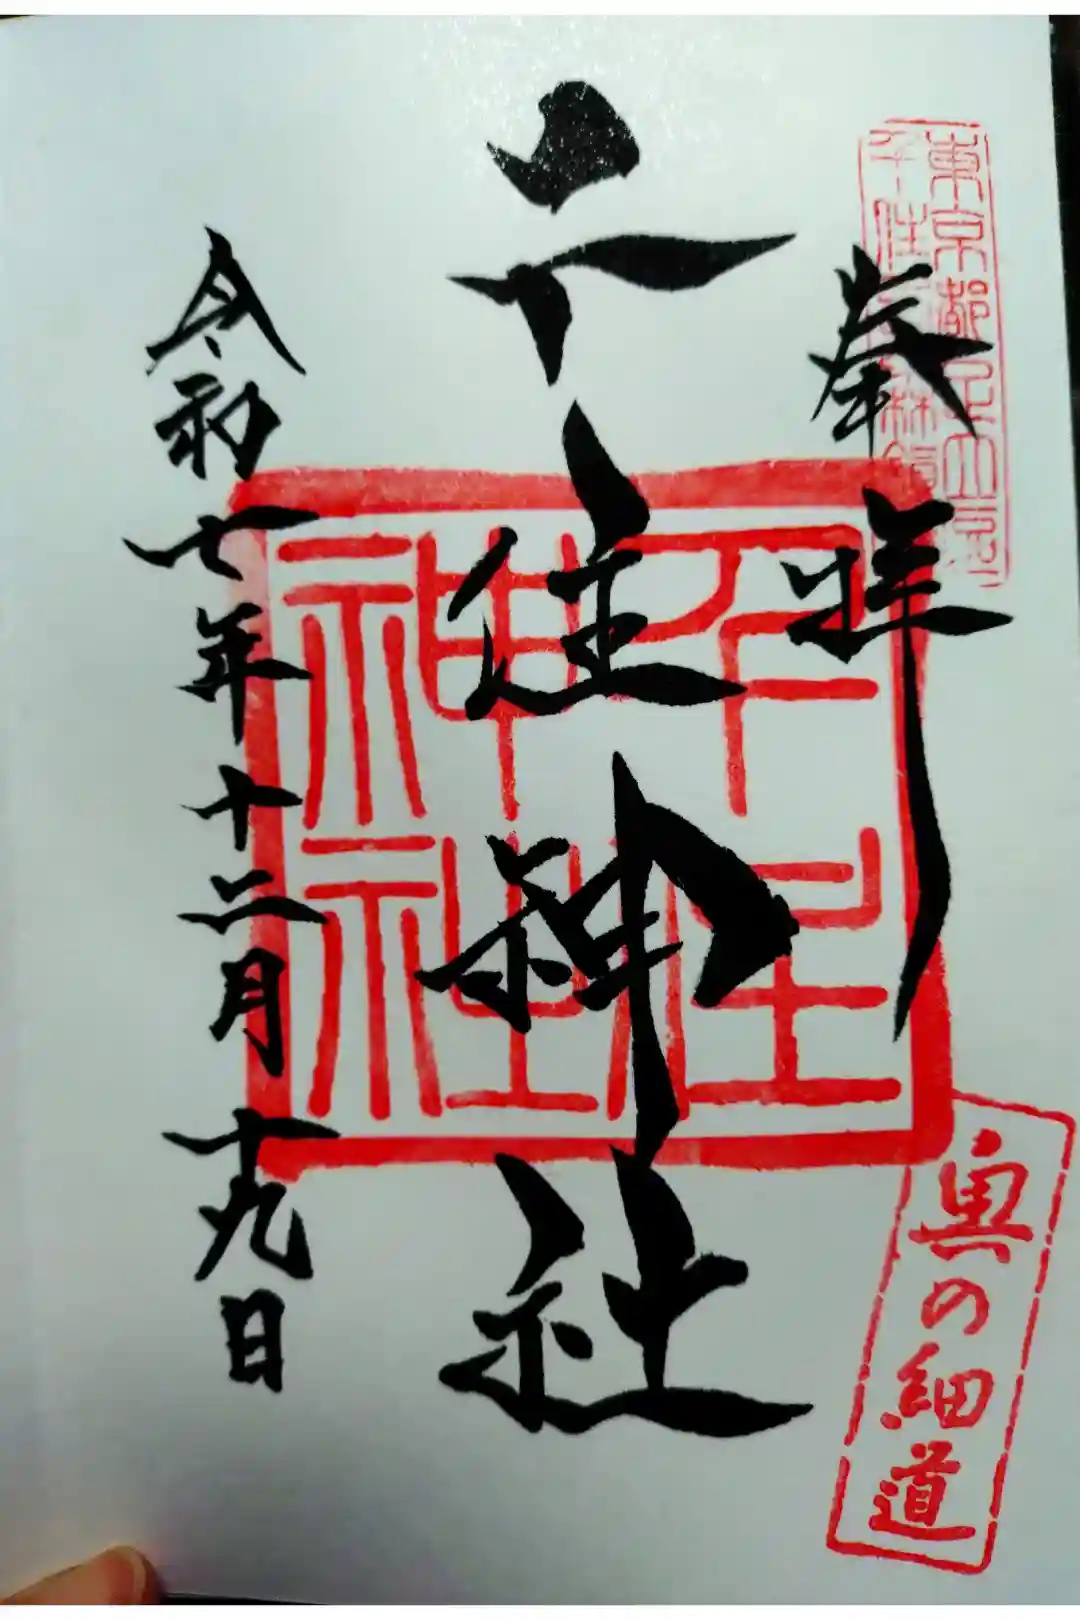 東京都足立区
千住
奉拝
千住神社
千住
神社
奥の細道
令和七年十二月十九日